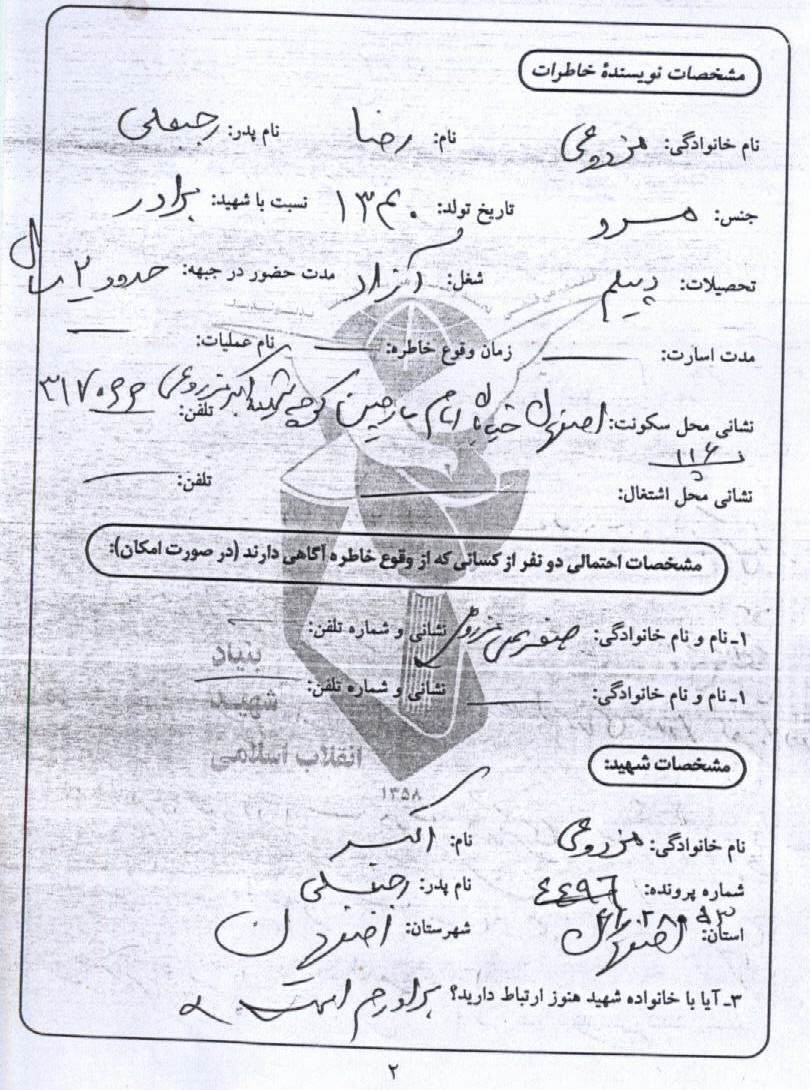 مشخصات نویسندهٔ خاطرات
نام خانوادگی: مزروعی نام: رضا نام پدر: رجبعلی
جنس: مرد تاریخ تولد: ۱۳۴۰ نسبت با شهید: برادر
تحصیلات: دیپلم شغل: آزاد مدت حضور در جبهه: حدود ۲ سال
مدت اسارت: زمان وقوع خاطره: نام عملیات:
نشانی محل سکونت: اصفهان خیابان امام خمینی کوچه شهید اکبر مزروعی تلفن:
پ ۱۱۶
نشانی محل اشتغال: تلفن:
مشخصات احتمالی دو نفر از کسانی که از وقوع خاطره آگاهی دارند (در صورت امکان):
۱ـ نام و نام خانوادگی: مزروعی نشانی و شماره تلفن:
۱ـ نام و نام خانوادگی: نشانی و شماره تلفن:
بنیاد
شهید
انقلاب اسلامی
۱۳۵۸
مشخصات شهید:
نام خانوادگی: مزروعی نام: اکبر
شماره پرونده: نام پدر: رجبعلی
استان: اصفهان شهرستان: اصفهان
۳ـ آیا با خانواده شهید هنوز ارتباط دارید؟ برادرم است
۲